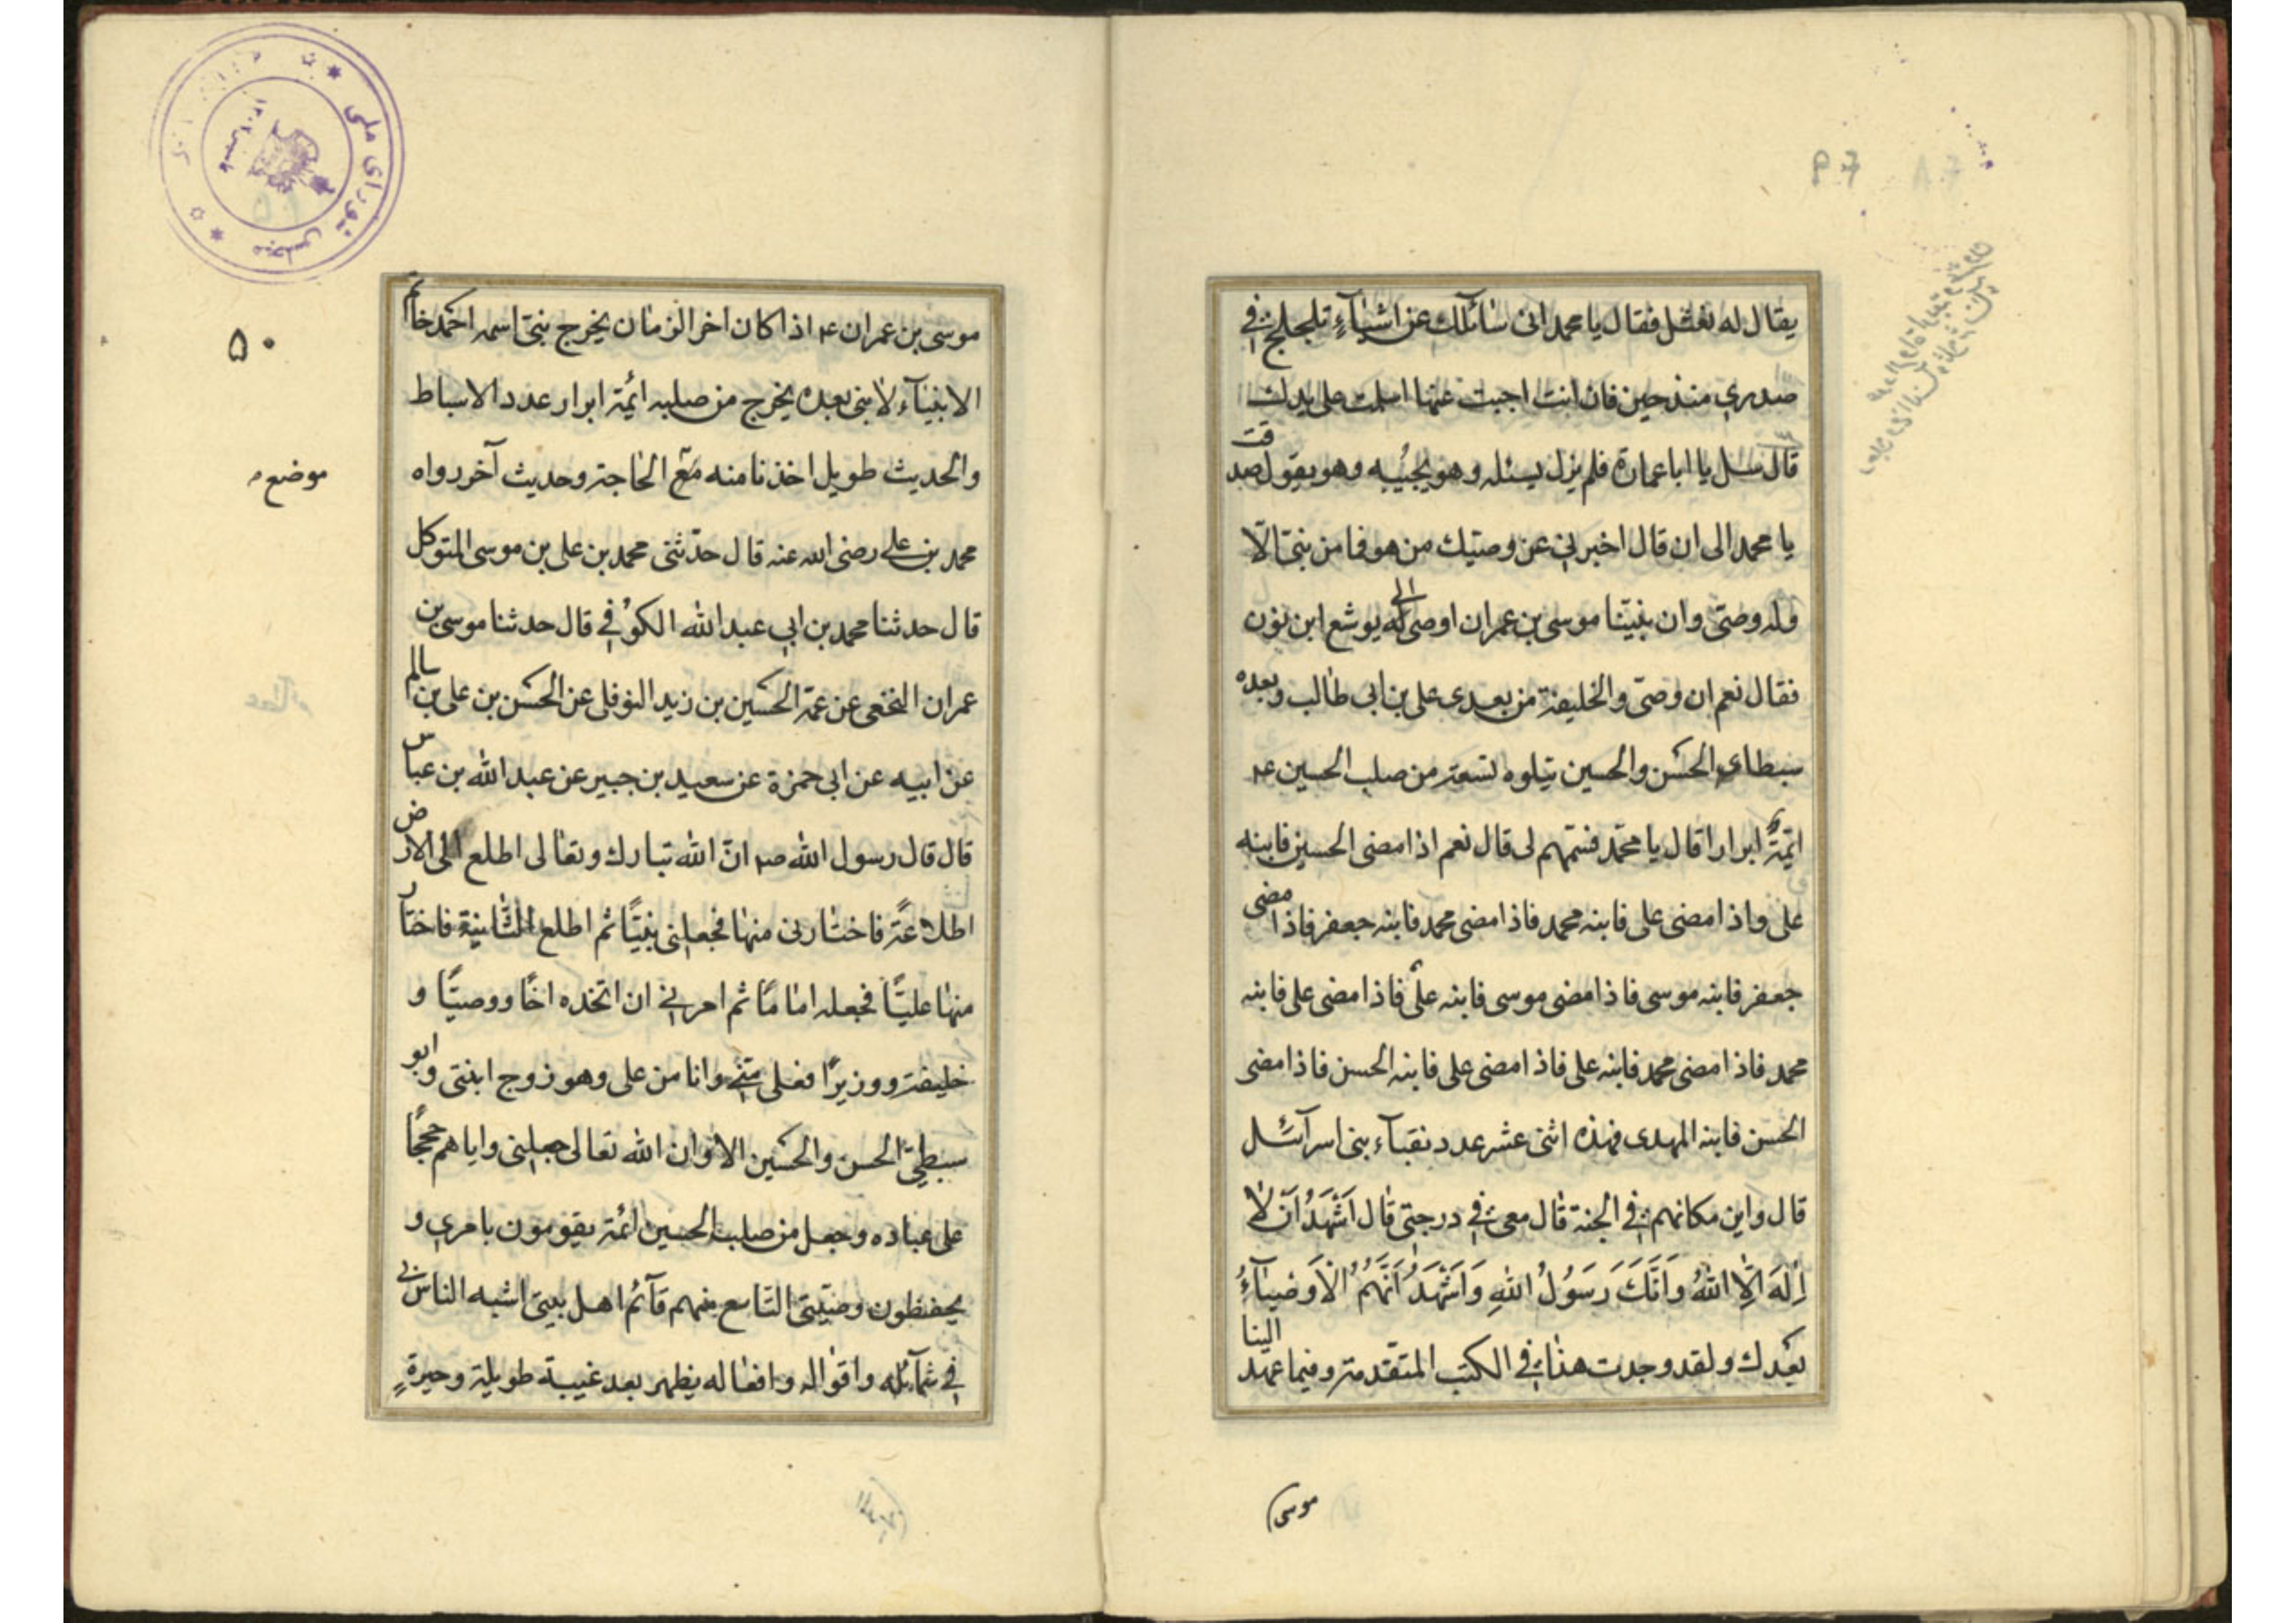 يقال له نعثل فقال يا محمد انى سائلك عن اشيآءٍ تلجلج فى
صدرى منذ حين فان انت اجبت عنها اسلمت على يدك
قال سل يا ابا عمارة فلم يزل يسئله وهو يجيبه وهو يقول صدقت
يا محمد الى ان قال اخبرنى عن وصيك من هو فما من نبى الّا
وله وصىّ وان نبيّنا موسى بن عمران اوصى الى يوشع ابن نون
فقال نعم ان وصىّ والخليفة من بعدى على بن ابى طالب وبعده
سبطاى الحسن والحسين يتلوه تسعة من صلب الحسين ع
ائمّةٌ ابرار قال يا محمّد فسمّهم لى قال نعم اذا مضى الحسين فابنه
على واذا مضى على فابنه محمد فاذا مضى محمد فابنه جعفر فاذا مضى
جعفر فابنه موسى فاذا مضى موسى فابنه علىّ فاذا مضى على فابنه
محمد فاذا مضى محمد فابنه على فاذا مضى على فابنه الحسن فاذا مضى
الحسن فابنه المهدى فهذه اثنى عشر عدد نقبآء بنى اسرآئيل
قال واين مكانهم فى الجنة قال معى فى درجتى قال اَشْهَدُ اَنْ لٰا
اِلٰهَ اِلَّا اللهُ وَاَنَّكَ رَسُولُ اللهِ وَاَشْهَدُ اَنَّهُمُ الْاَوْصِيآءُ
بعدك ولقد وجدت هذا فى الكتب المتقدمة وفيما عهد الينا
موسى
۵۰
موسى بن عمران ع اذا كان اخر الزمان يخرج نبىّ اسمه احمد خاتم
الانبيآء لا نبى بعده يخرج من صلبه ائمة ابرار عدد الاسباط
والحديث طويل اخذنا منه موضع الحاجة وحديث آخر رواه
موضع
محمد بن على رضى الله عنه قال حدّثنى محمد بن على بن موسى المتوكل
قال حدثنا محمد بن ابى عبد الله الكوفى قال حدثنا موسى بن
عمران النخعى عن عمّه الحسين بن زيد النوفلى عن الحسن بن على بن سالم
عن ابيه عن ابى حمزة عن سعيد بن جبير عن عبد الله بن عباس
قال قال رسول الله ص انّ الله تبارك وتعالى اطلع الى الارض
اطلاعةً فاختارنى منها فجعلنى نبيًّا ثم اطلع الثانية فاختار
منها عليًّا فجعله امامًا ثم امرنى ان اتخذه اخًا ووصيًّا و
خليفة ووزيرًا فعلى منّى وانا من على وهو زوج ابنتى وابو
سبطىّ الحسن والحسين الا وان الله تعالى جعلنى واياهم حججًا
على عباده وجعل من صلب الحسين ائمة يقومون بامرى و
يحفظون وصيّتى التاسع منهم قآئم اهل بيتى اشبه الناس بى
فى شمآئله واقواله وافعاله يظهر بعد غيبة طويلة وحيرةٍ